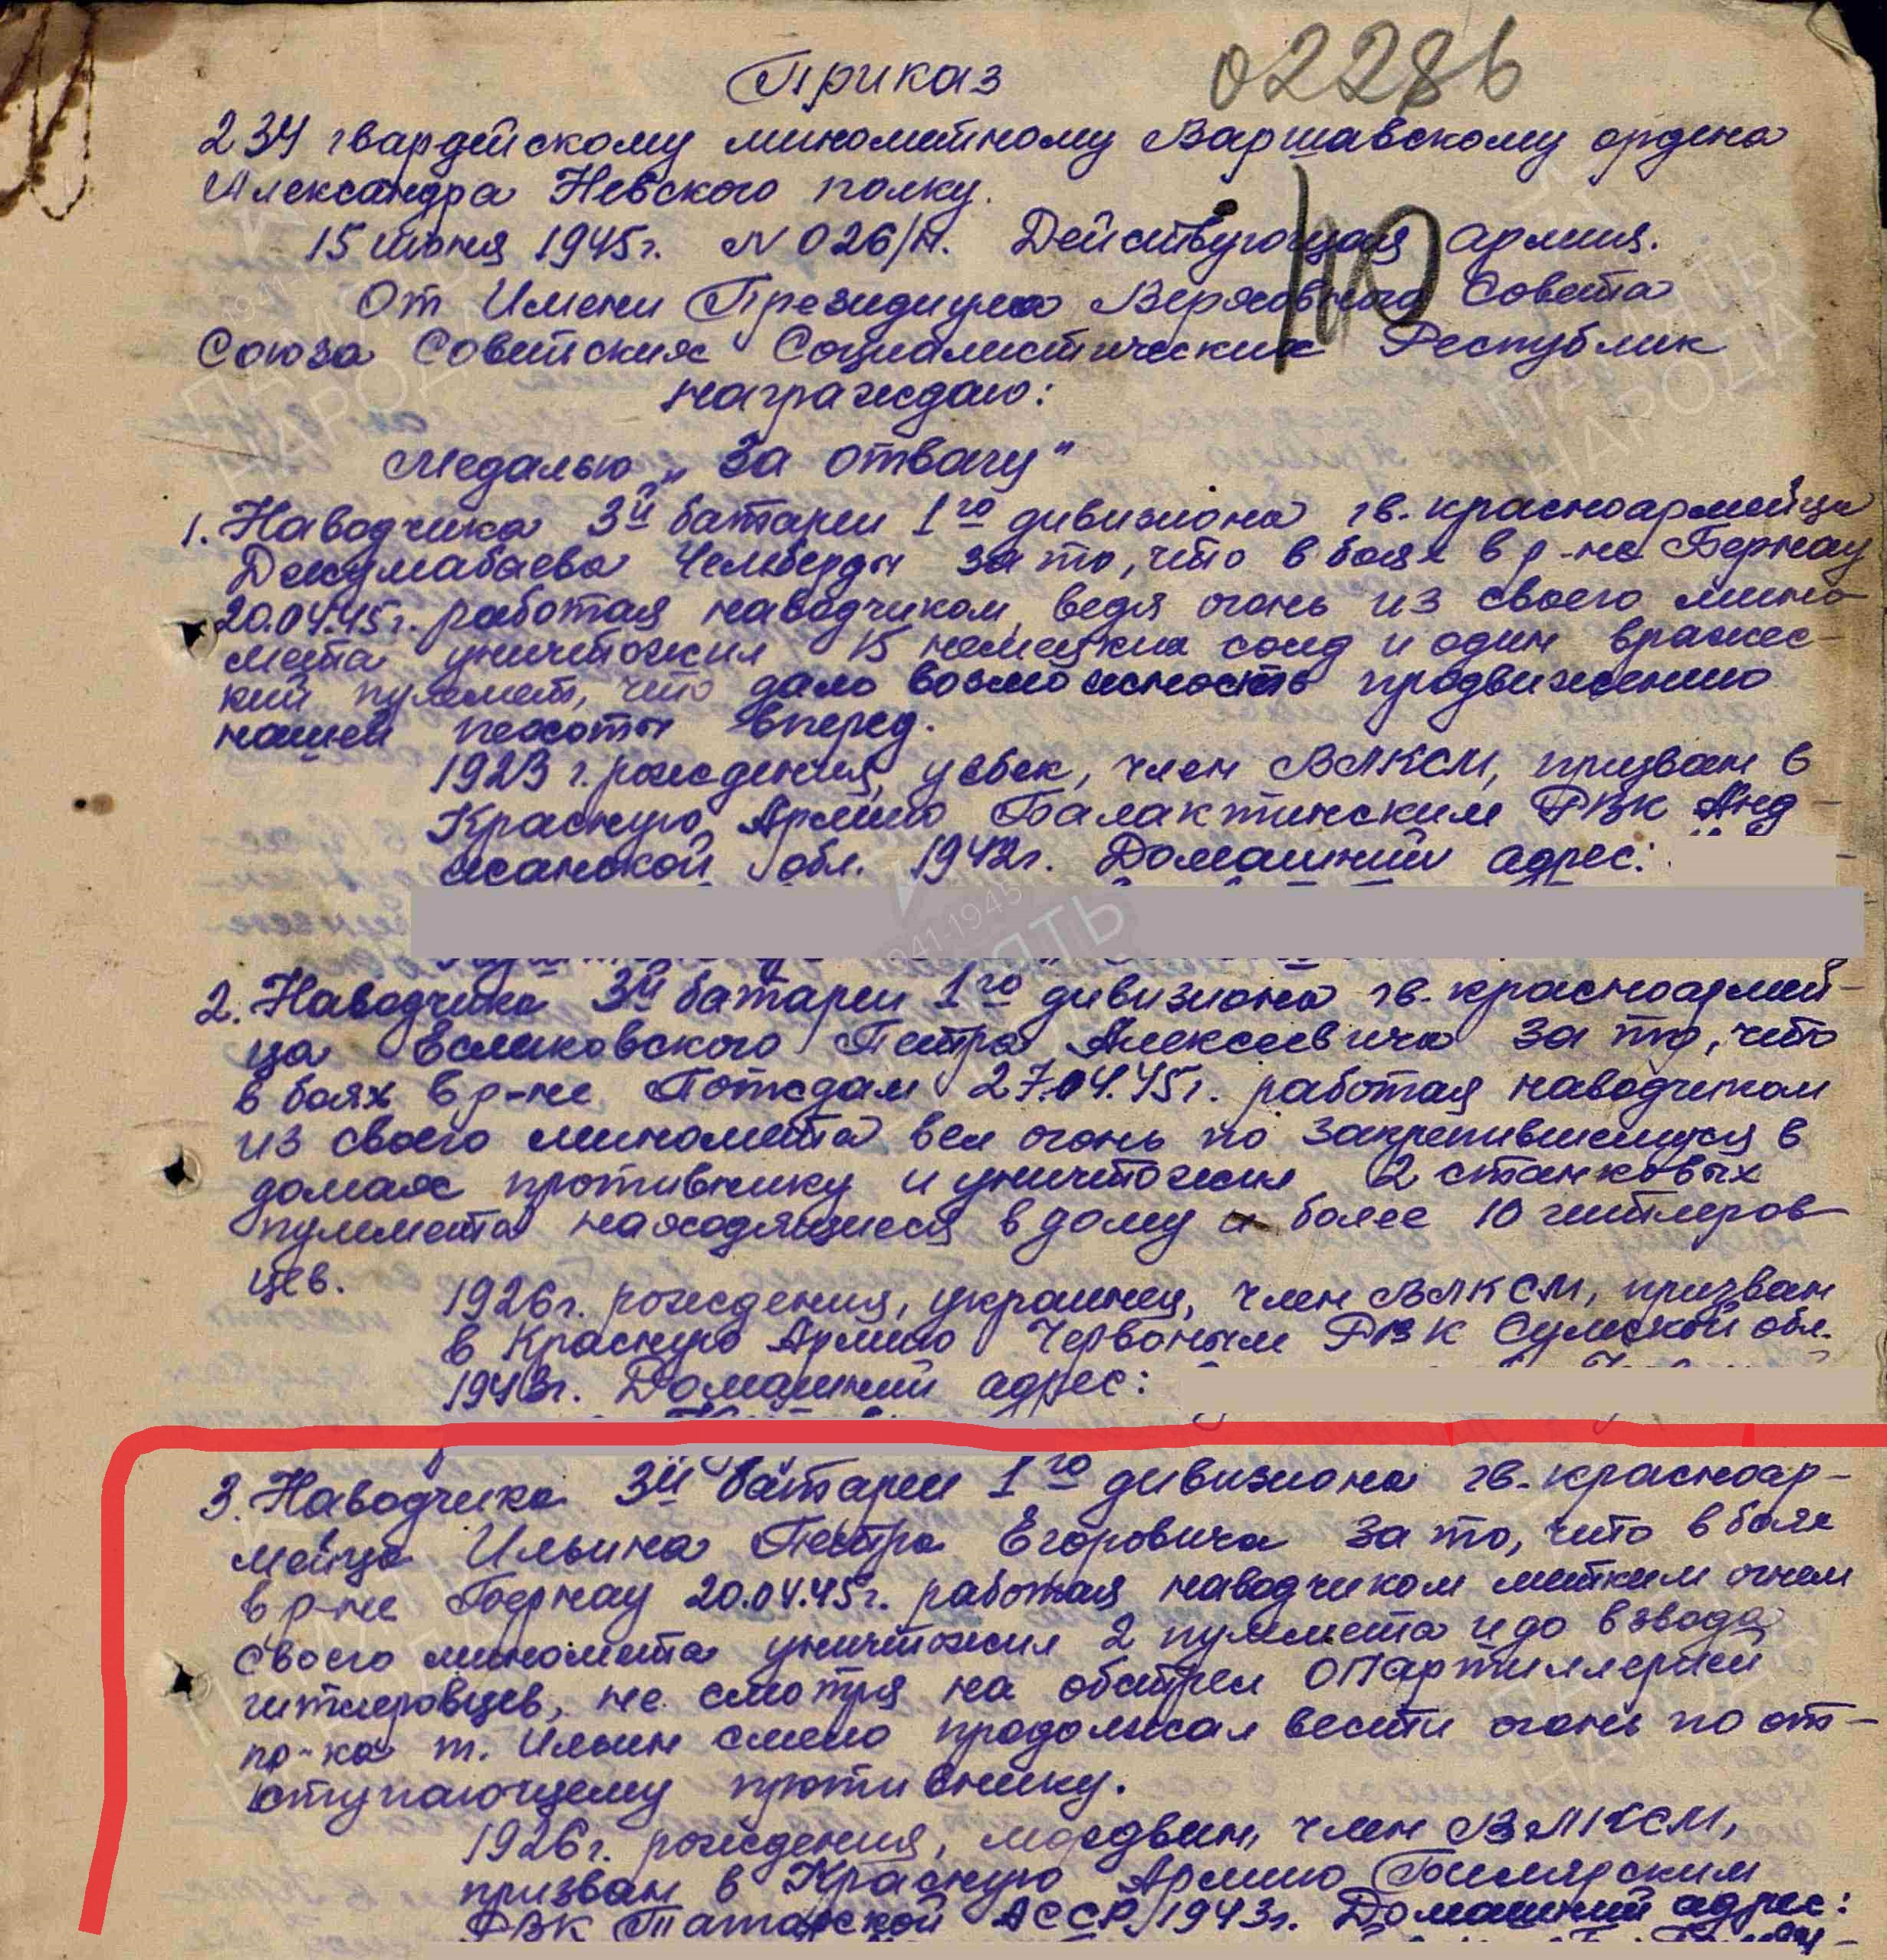 Приказ
02286
234 гвардейскому минометному Варшавскому ордена
Александра Невского полку.
15 июня 1945г. № 026/н. Действующая армия.
От Имени Президиума Верховного Совета
Союза Советских Социалистических Республик
награждаю:
Медалью „За отвагу"
1. Наводчика 3й батареи 1го дивизиона гв. красноармейца
Джумабаева за то, что в боях в р-не Бернау
20.04.45г. работая наводчиком, ведя огонь из своего мино-
мета уничтожил 15 немецких солд и один вражес-
кий пулемет, что дало возможность продвижению
нашей пехоты вперед.
1923 г. рождения, узбек, член ВЛКСМ, призван в
Красную Армию Балактинским РВК Анд-
жанской обл. 1942г. Домашний адрес:
2. Наводчика 3й батареи 1го дивизиона гв. красноармей-
ца Есликовского Петра Алексеевича за то, что
в боях в р-не Потсдам 27.04.45г. работая наводчиком
из своего миномета вел огонь по закрепившемуся в
домах противнику и уничтожил 2 станковых
пулемета находящиеся в дому и более 10 гитлеров
цев.
1926г. рождения, украинец, член ВЛКСМ, призван
в Красную Армию Червоным РВК Сумской обл.
1943г. Домашний адрес:
3. Наводчика 3й батареи 1го дивизиона гв. красноар-
мейца Ильина Петра Егоровича за то, что в боях
в р-не Бернау 20.04.45г. работая наводчиком метким огнем
своего миномета уничтожил 2 пулемета и до взвода
гитлеровцев, не смотря на обстрел артиллерией
пр-ка т. Ильин смело продолжал вести огонь по от-
ступающему противнику.
1926г. рождения, мордвин, член ВЛКСМ,
призван в Красную Армию Билярским
РВК Татарской АССР 1943г. Домашний адрес: